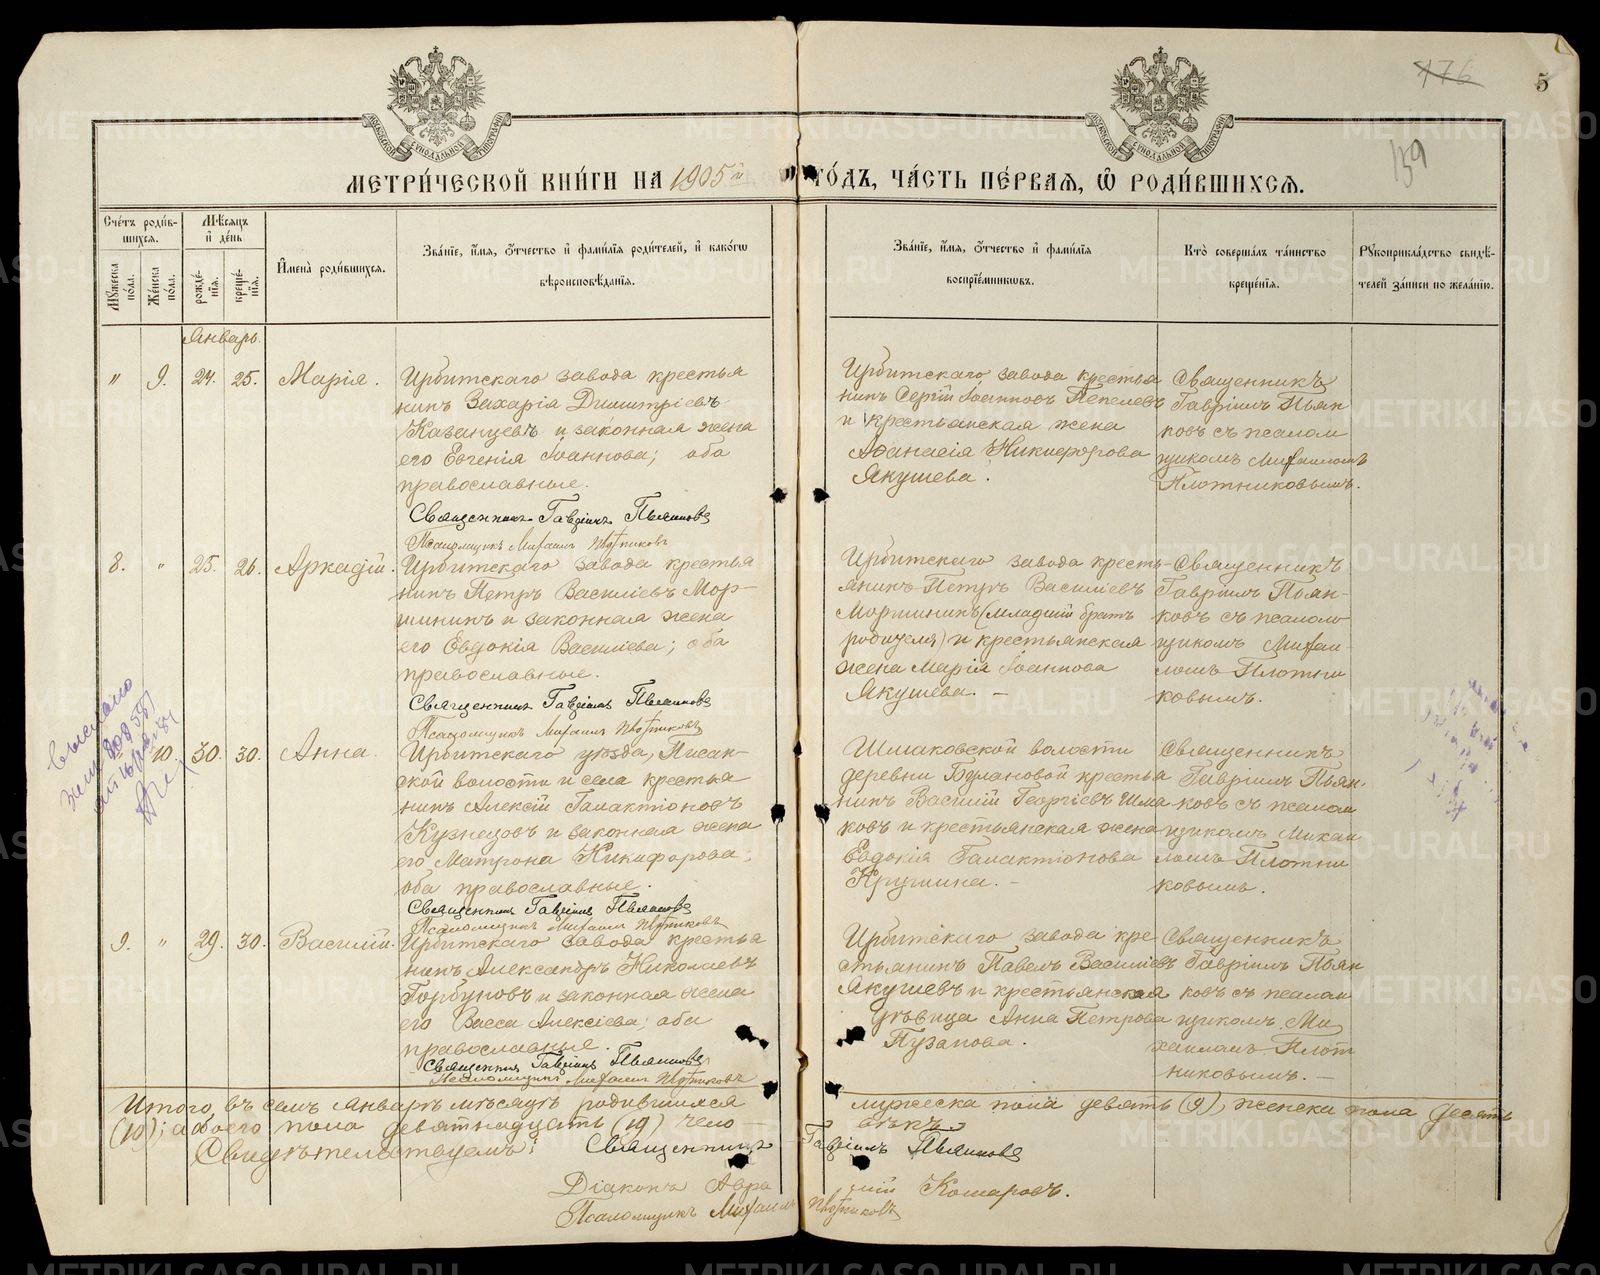 176
5
139
МЕТРИ́ЧЕСКОЙ КНИ́ГИ НА 1905й ГО́ДЪ, ЧА́СТЬ ПЕ́РВАЯ, Ѡ РОДИ́ВШИХСЯ.
Сче́тъ роди́в-
шихся.
Мѣ́сяцъ
и҆ де́нь
Мꙋ́жеска по́ла.
Же́нска по́ла.
рожде́-
нїя.
креще́-
нїя.
И҆мена̀ роди́вшихся.
Зва́нїе, и҆́мя, ѻ҆́тчество и҆ фами́лїя роди́телей, и҆ како́гѡ
вѣроисповѣ́данїя.
Зва́нїе, и҆́мя, ѻ҆́тчество и҆ фами́лїя
воспрїе́мниковъ.
Кто̀ соверша́лъ та́инство
креще́нїя.
Рꙋкоприкла́дство свидѣ́-
телей за́писи по жела́нїю.
Январь.
" 9. 24. 25. Марія.
Ирбитскаго завода крестья
нинъ Захарія Димитріевъ
Казанцевъ и законная жена
его Евгенія Іоаннова; оба
православные.
Священникъ Гавріилъ Пьянковъ
Псаломщикъ Михаилъ Плотниковъ
Ирбитскаго завода крестья
нинъ Сергій Іоанновъ Пепелевъ
и крестьянская жена
Аѳанасія Никифорова
Якушева.
Священникъ
Гавріилъ Пьян
ковъ съ псалом
щикомъ Михаиломъ
Плотниковымъ.
8. " 25. 26. Аркадій.
Ирбитскаго завода крестья
нинъ Петръ Василіевъ Мор-
шининъ и законная жена
его Евдокія Василіева; оба
православные.
Священникъ Гавріилъ Пьянковъ
Псаломщикъ Михаилъ Плотниковъ
Ирбитскаго завода кресть-
янинъ Петръ Василіевъ
Моршининъ (младшій братъ
родителя) и крестьянская
жена Марія Іоаннова
Якушева. –
Священникъ
Гавріилъ Пьян-
ковъ съ псалом
щикомъ Михаи-
ломъ Плотни
ковымъ.
" 10 30. 30. Анна.
Ирбитскаго уѣзда, Писан-
ской волости и села крестья
нинъ Алексій Галактіоновъ
Кузнецовъ и законная жена
его Матрона Никифорова;
оба православные.
Священникъ Гавріилъ Пьянковъ
Псаломщикъ Михаилъ Плотниковъ
Шмаковской волости
деревни Булановой крестья
нинъ Василій Георгіевъ Шма
ковъ и крестьянская жена
Евдокія Галактіонова
Кручинина. –
Священникъ
Гавріилъ Пьян-
ковъ съ псалом
щикомъ Михаи
ломъ Плотни
ковымъ.
9. " 29. 30. Василій.
Ирбитскаго завода крестья
нинъ Александръ Николаевъ
Горбуновъ и законная жена
его Васса Алексіева; оба
православные.
Священникъ Гавріилъ Пьянковъ
Псаломщикъ Михаилъ Плотниковъ
Ирбитскаго завода кре
стьянинъ Павелъ Василіевъ
Якушевъ и крестьянская
дѣвица Анна Петрова
Пузанова.
Священникъ
Гавріилъ Пьян
ковъ съ псалом
щикомъ Ми
хаиломъ Плот
никовымъ. –
Итого, въ семъ Январѣ мѣсяцѣ родившихся мужеска пола девять (9), женска пола десять
(10); а обоего пола девятнадцать (19) чело вѣкъ.
Свидѣтельствуемъ: Священникъ Гавріилъ Пьянковъ
Діаконъ Авра мій Комаровъ.
Псаломщикъ Михаилъ Плотниковъ